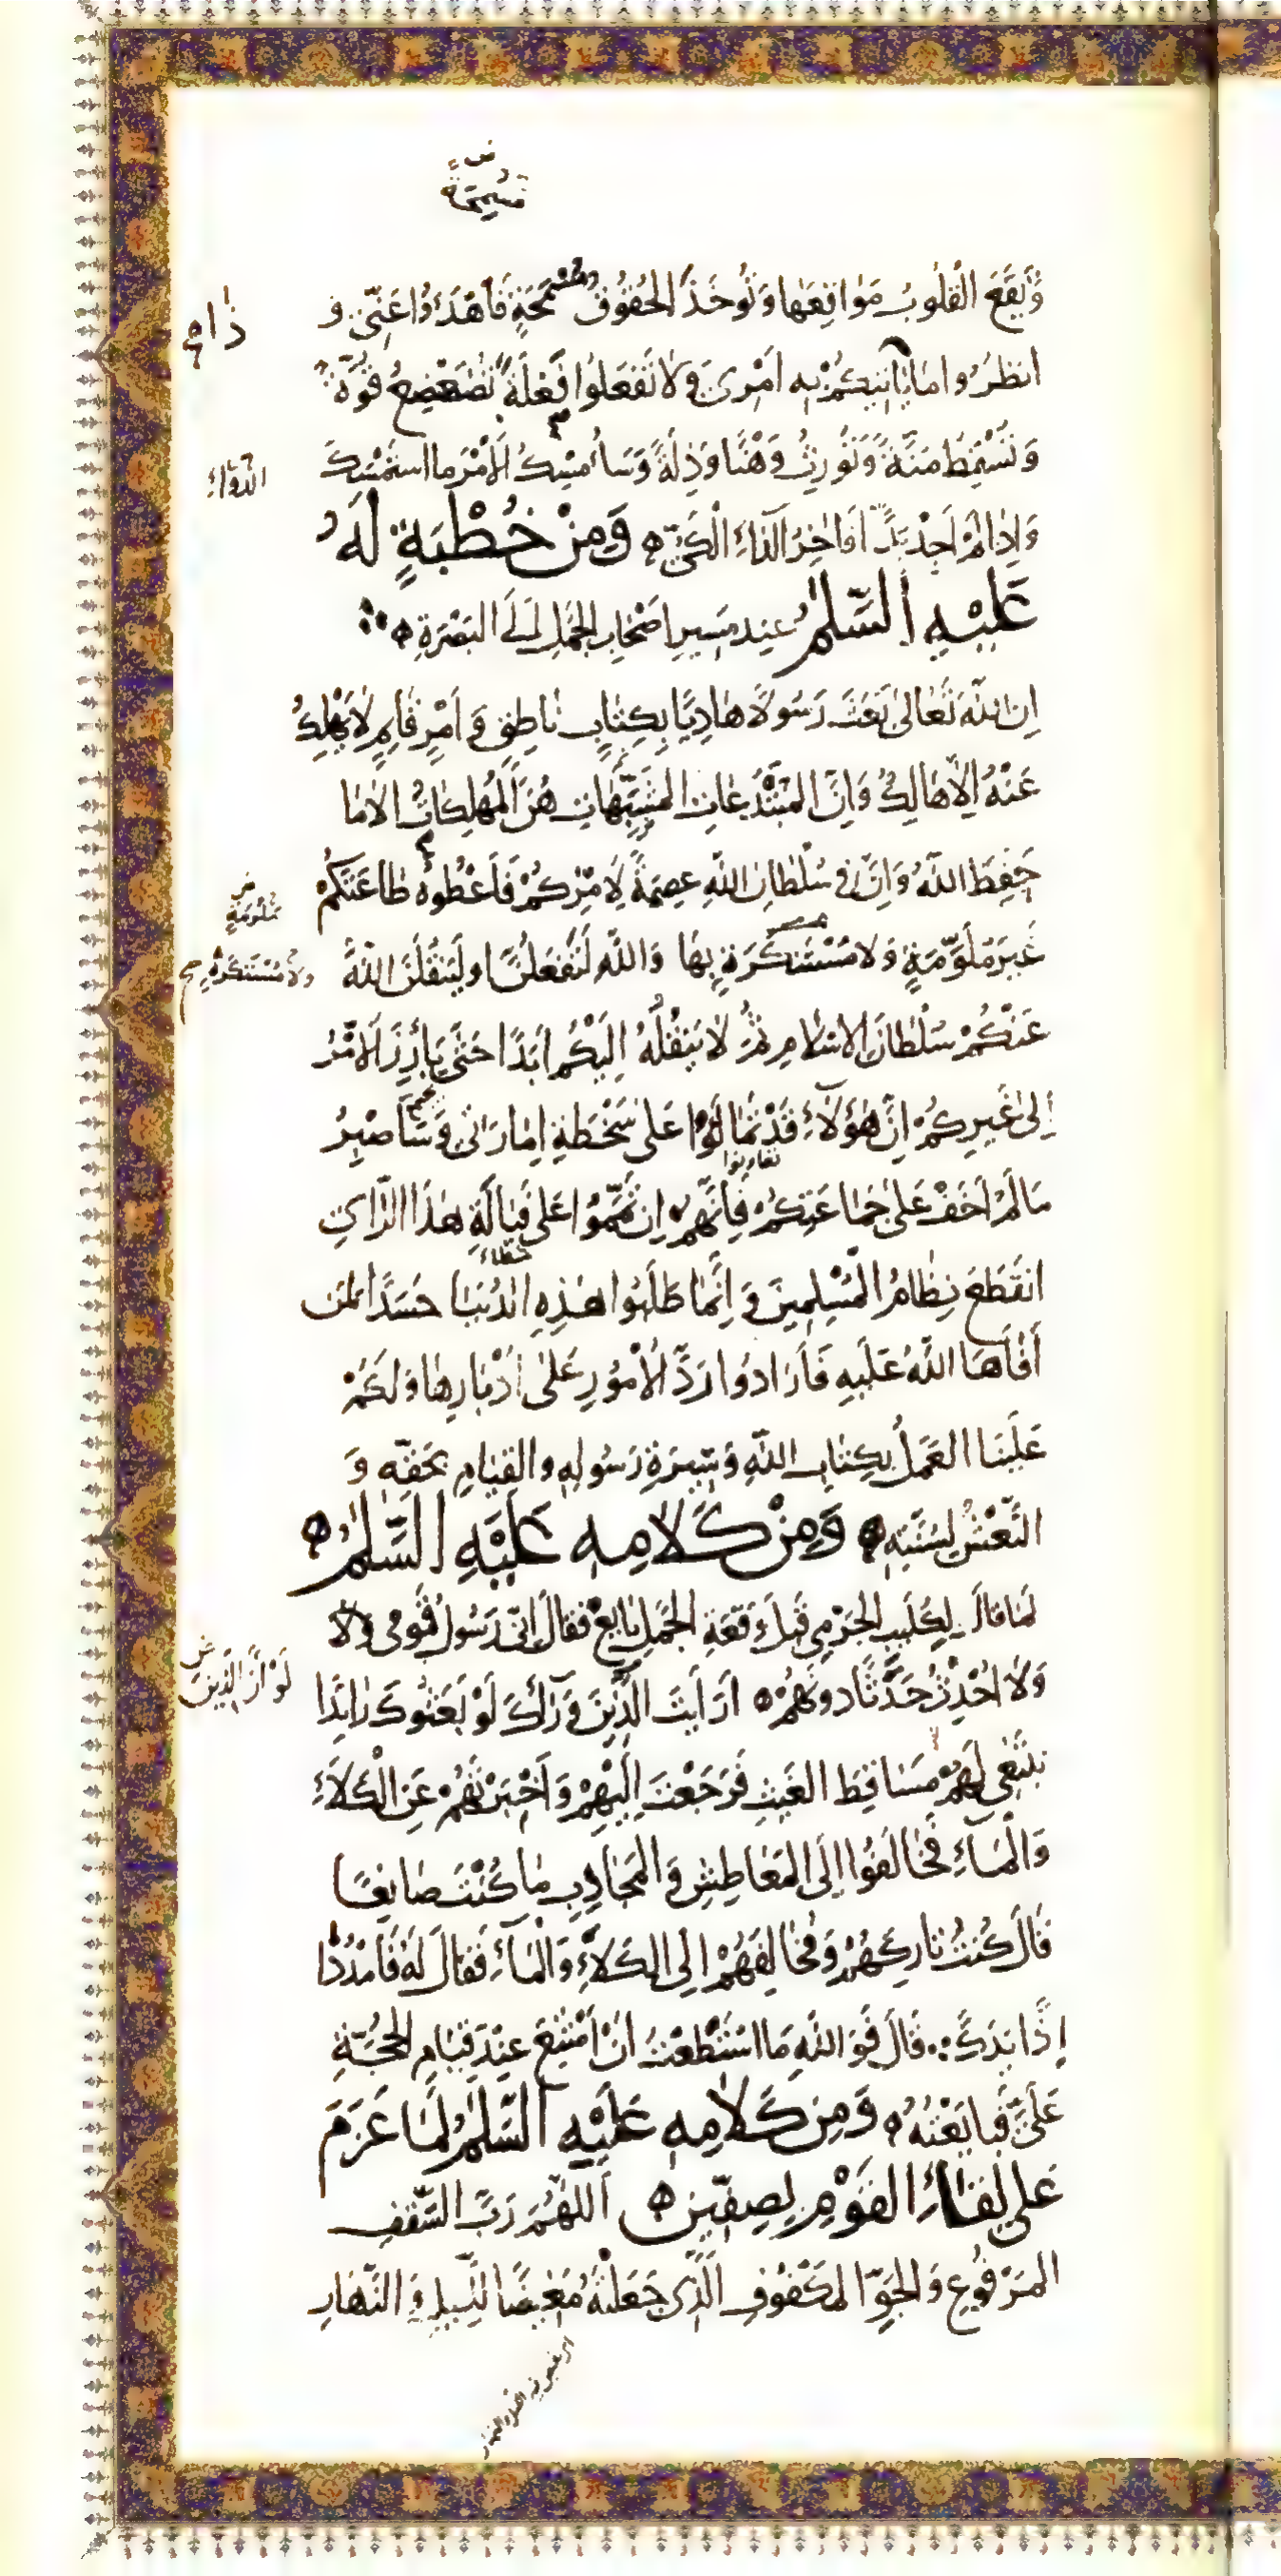 مُسْمِحَةً
وَتَقَعَ الْقُلُوبُ مَوَاقِعَهَا وَتُوخَذَ الْحُقُوقُ مُسْمَحَةً فَاهْدَءُوا عَنِّي وَ
انظُرُوا مَا ذَا يَأْتِيكُمْ بِهِ أَمْرِي وَلَا تَفْعَلُوا فَعْلَةً تُضَعْضِعُ قُوَّةً
وَتُسْقِطُ مُنَّةً وَتُورِثُ وَهْنًا وَذِلَّةً وَسَأُمْسِكُ الْأَمْرَ مَا اسْتَمْسَكَ
الدَّوَاءِ
وَإِذَا لَمْ أَجِدْ بُدًّا فَآخِرُ الدَّاءِ الْكَيُّ وَمِنْ خُطْبَةٍ لَهُ
عَلَيْهِ السَّلَمُ عِنْدَ مَسِيرِ أَصْحَابِ الْجَمَلِ إِلَى الْبَصْرَةِ
إِنَّ اللَّهَ تَعَالَى بَعَثَ رَسُولًا هَادِيًا بِكِتَابٍ نَاطِقٍ وَأَمْرٍ قَائِمٍ لَا يَهْلِكُ
عَنْهُ إِلَّا هَالِكٌ وَإِنَّ الْمُبْتَدَعَاتِ الْمُشَبَّهَاتِ هُنَّ الْمُهْلِكَاتُ إِلَّا مَا
حَفِظَ اللَّهُ وَإِنَّ فِي سُلْطَانِ اللَّهِ عِصْمَةً لِأَمْرِكُمْ فَأَعْطُوهُ طَاعَتَكُمْ
مَلُومَةٍ
غَيْرَ مُلَوَّمَةٍ وَلَا مُسْتَكْرَهٍ بِهَا وَاللَّهِ لَتَفْعَلُنَّ أَو لَيَنْقُلَنَّ اللَّهُ
وَلَا مُسْتَنْكَرَةٍ
عَنْكُمْ سُلْطَانَ الْإِسْلَامِ ثُمَّ لَا يَنْقُلُهُ إِلَيْكُمْ أَبَدًا حَتَّى يَأْرِزَ الْأَمْرُ
إِلَى غَيْرِكُمْ إِنَّ هَؤُلَاءِ قَدْ تَمَالَؤُا عَلَى سَخْطَةِ إِمَارَتِي وَسَأَصْبِرُ
تعاونوا
مَا لَمْ أَخَفْ عَلَى جَمَاعَتِكُمْ فَإِنَّهُمْ إِنْ تَمَّمُوا عَلَى فَيَالَةِ هَذَا الرَّأْيِ
انْقَطَعَ نِظَامُ الْمُسْلِمِينَ وَإِنَّمَا طَلَبُوا هَذِهِ الدُّنْيَا حَسَدًا لِمَنْ
أَفَاءَهَا اللَّهُ عَلَيْهِ فَأَرَادُوا رَدَّ الْأُمُورِ عَلَى أَدْبَارِهَا وَلَكُمْ
عَلَيْنَا الْعَمَلُ بِكِتَابِ اللَّهِ وَسِيرَةِ رَسُولِهِ وَالْقِيَامِ بِحَقِّهِ وَ
النَّعْشُ لِسُنَّتِهِ وَمِنْ كَلَامِهِ عَلَيْهِ السَّلَمُ
لَمَّا قَالَ لِكُلَيْبِ الْجَرْمِي قَبْلَ وَقْعَةِ الْجَمَلِ بَايِعْ فَقَالَ إِنِّي رَسُولُ قَوْمِي
وَلَا أُحْدِثُ حَدَثًا دُونَهُمْ أَرَأَيْتَ الَّذِينَ وَرَاءَكَ لَوْ بَعَثُوكَ رَائِدًا
لَوْ أَنَّ الَّذِينَ
تَبْتَغِي لَهُمْ مَسَاقِطَ الْغَيْثِ فَرَجَعْتَ إِلَيْهِمْ وَأَخْبَرْتَهُمْ عَنِ الْكَلَاءِ
وَالْمَاءِ فَخَالَفُوا إِلَى الْمَعَاطِشِ وَالْمَجَادِبِ مَا كُنْتَ صَانِعًا
قَالَ كُنْتُ تَارِكَهُمْ وَمُخَالِفَهُمْ إِلَى الْكَلَاءِ وَالْمَاءِ فَقَالَ لَهُ فَامْدُدْ
إِذًا يَدَكَ قَالَ فَوَاللَّهِ مَا اسْتَطَعْتُ أَنْ أَمْتَنِعَ عِنْدَ قِيَامِ الْحُجَّةِ
عَلَيَّ فَبَايَعْتُهُ وَمِن كَلَامِهِ عَلَيْهِ السَّلَمُ لَمَّا عَزَمَ
عَلَى لِقَاءِ الْقَوْمِ بِصِفِّينَ اللَّهُمَّ رَبَّ السَّقْفِ
الْمَرْفُوعِ وَالْجَوِّ الْمَكْفُوفِ الَّذِي جَعَلْتَهُ مَغِيضًا لِلَّيْلِ وَالنَّهَارِ